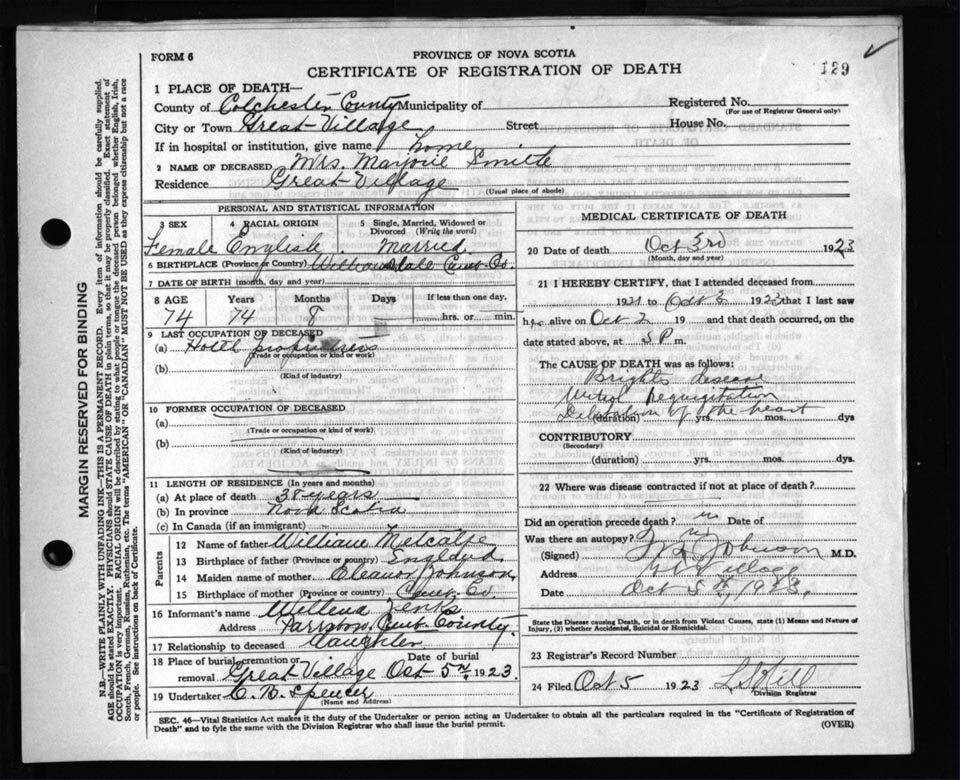 FORM 6
PROVINCE OF NOVA SCOTIA
CERTIFICATE OF REGISTRATION OF DEATH
129
1 PLACE OF DEATH—
County of Colchester County Municipality of
Registered No.
(For use of Registrar General only)
City or Town Great Village Street House No.
If in hospital or institution, give name home
2 NAME OF DECEASED Mrs. Marjorie Smith
Residence Great Village
(Usual place of abode)
PERSONAL AND STATISTICAL INFORMATION
3 SEX 4 RACIAL ORIGIN 5 Single, Married, Widowed or Divorced (Write the word)
Female English. Married
6 BIRTHPLACE (Province or Country) Williamsdale Cumb. Co.
7 DATE OF BIRTH (month, day and year)
8 AGE Years Months Days If less than one day,
74 74 8 hrs. or min.
9 LAST OCCUPATION OF DECEASED
(a) Hotel
(Trade or occupation or kind of work)
(b)
(Kind of industry)
10 FORMER OCCUPATION OF DECEASED
(a)
(Trade or occupation or kind of work)
(b)
(Kind of industry)
11 LENGTH OF RESIDENCE (In years and months)
(a) At place of death 38 years
(b) In province Nova Scotia
(c) In Canada (if an immigrant)
Parents
12 Name of father William Metcalfe
13 Birthplace of father (Province or country) England
14 Maiden name of mother Eleanor Johnson
15 Birthplace of mother (Province or country) Cumb. Co.
16 Informant's name Willena Jenks
Address Parrsboro Cumb. County.
17 Relationship to deceased daughter
18 Place of burial, cremation or removal Great Village Date of burial Oct 5th, 1923
19 Undertaker C. N. Spencer
(Name and Address)
MEDICAL CERTIFICATE OF DEATH
20 Date of death Oct 3rd 1923
(Month, day and year)
21 I HEREBY CERTIFY, that I attended deceased from
1921 to Oct 2 1923 that I last saw
her alive on Oct 2 19 and that death occurred, on
date stated above, at 5 P m.
The CAUSE OF DEATH was as follows:
Brights Disease
Mitral Regurgitation
Dilatation of the heart
(duration) yrs. mos. dys
CONTRIBUTORY
(Secondary)
(duration) yrs. mos. dys.
22 Where was disease contracted if not at place of death?
Did an operation precede death? no Date of
Was there an autopsy? no
(Signed) Johnson M.D.
Address Gt Village
Date Oct 5th, 1923.
State the Disease causing Death, or in Death from Violent Causes, state (1) Means and Nature of
Injury, (2) whether Accidental, Suicidal or Homicidal.
23 Registrar's Record Number
24 Filed Oct 5 1923 Hill
Division Registrar
SEC. 46—Vital Statistics Act makes it the duty of the Undertaker or person acting as Undertaker to obtain all the particulars required in the "Certificate of Registration of
Death" and to fyle the same with the Division Registrar who shall issue the burial permit.
(OVER)
MARGIN RESERVED FOR BINDING
N.B.—WRITE PLAINLY WITH UNFADING INK—THIS IS A PERMANENT RECORD. Every item of information should be carefully supplied.
AGE should be stated EXACTLY. PHYSICIANS should STATE CAUSE OF DEATH in plain terms, so that it may be properly classified. Exact statement of
OCCUPATION is very important. RACIAL ORIGIN will be described by stating to what people or tongue the deceased person belonged whether English, Irish,
Scotch, French, German, Russian, Ruthenian, etc. The terms "AMERICAN" OR "CANADIAN" MUST NOT BE USED as they express citizenship but not a race
or people. See instructions on back of Certificate.